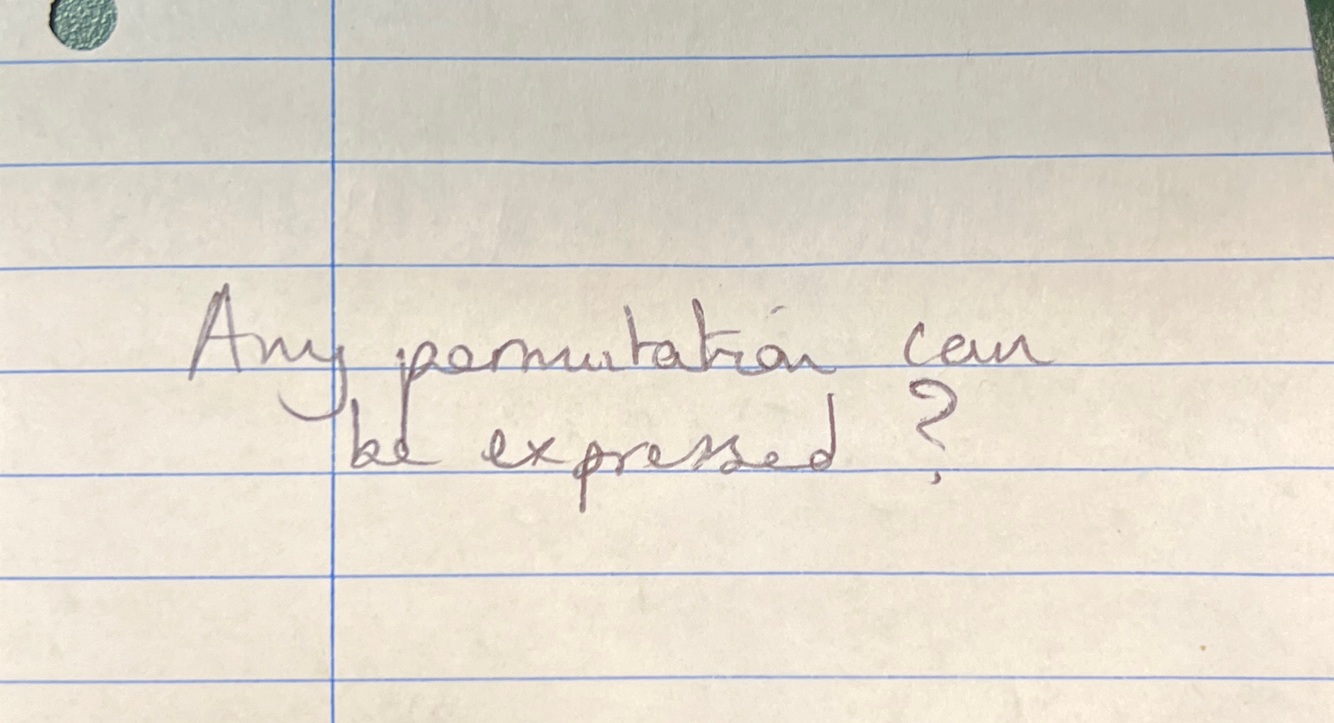 Any permutation can
be expressed ?